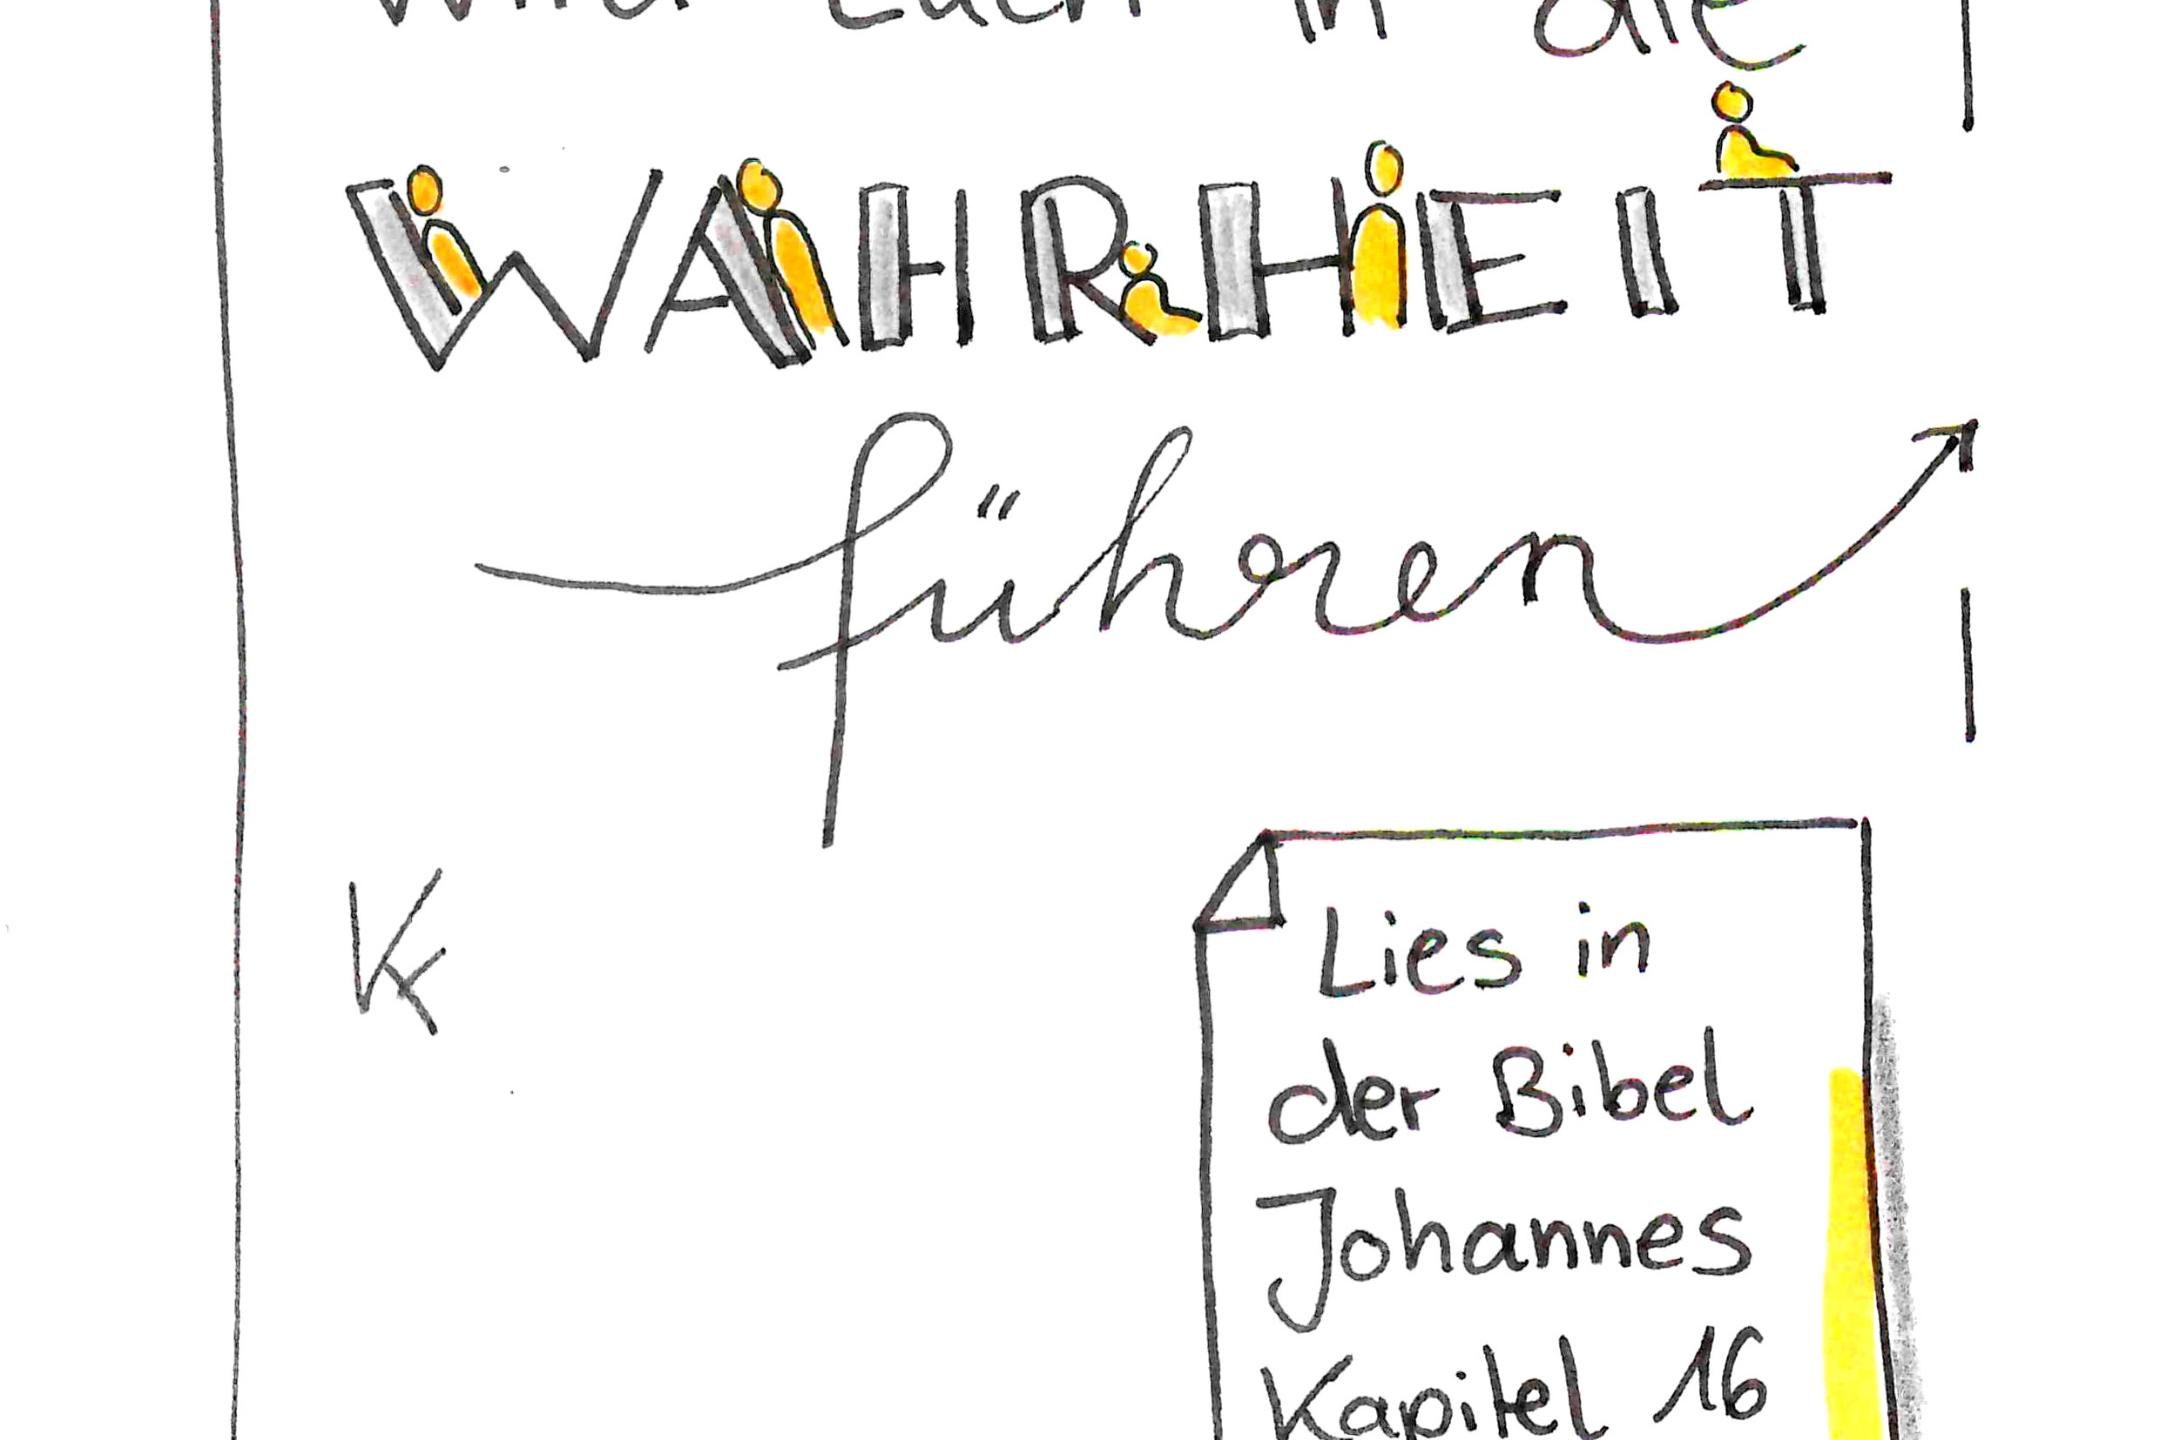 wird Euch in die
WAHRHEIT
führen
Lies in
der Bibel
Johannes
Kapitel 16